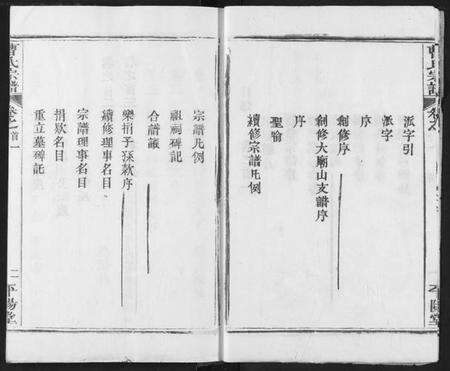 曹氏宗譜
派字引
派字
序
創修序
創修大廟山支譜序
序
聖諭
續修宗譜凡例
平陽堂
宗譜凡例
祖祠碑記
合譜議
樂捐予採款序
續修理事名目
宗譜理事名目
捐欵名目
重立墓碑記
曹氏宗譜
卷之首一
二平陽堂